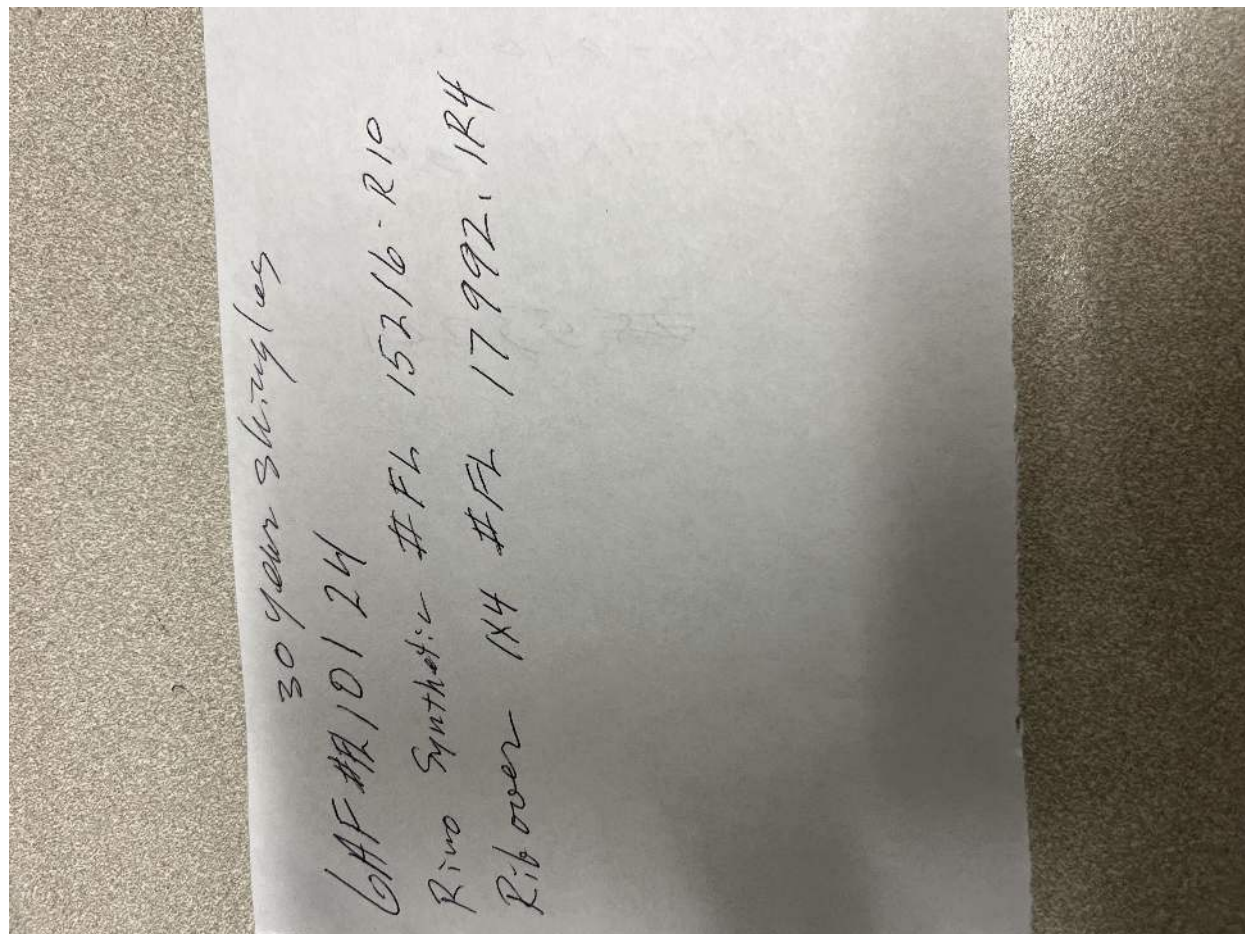 30 year shingles
GAF # 10124
Rino Synthetic #FL 15216-R10
Rib over 1x4 #FL 17992.1R4